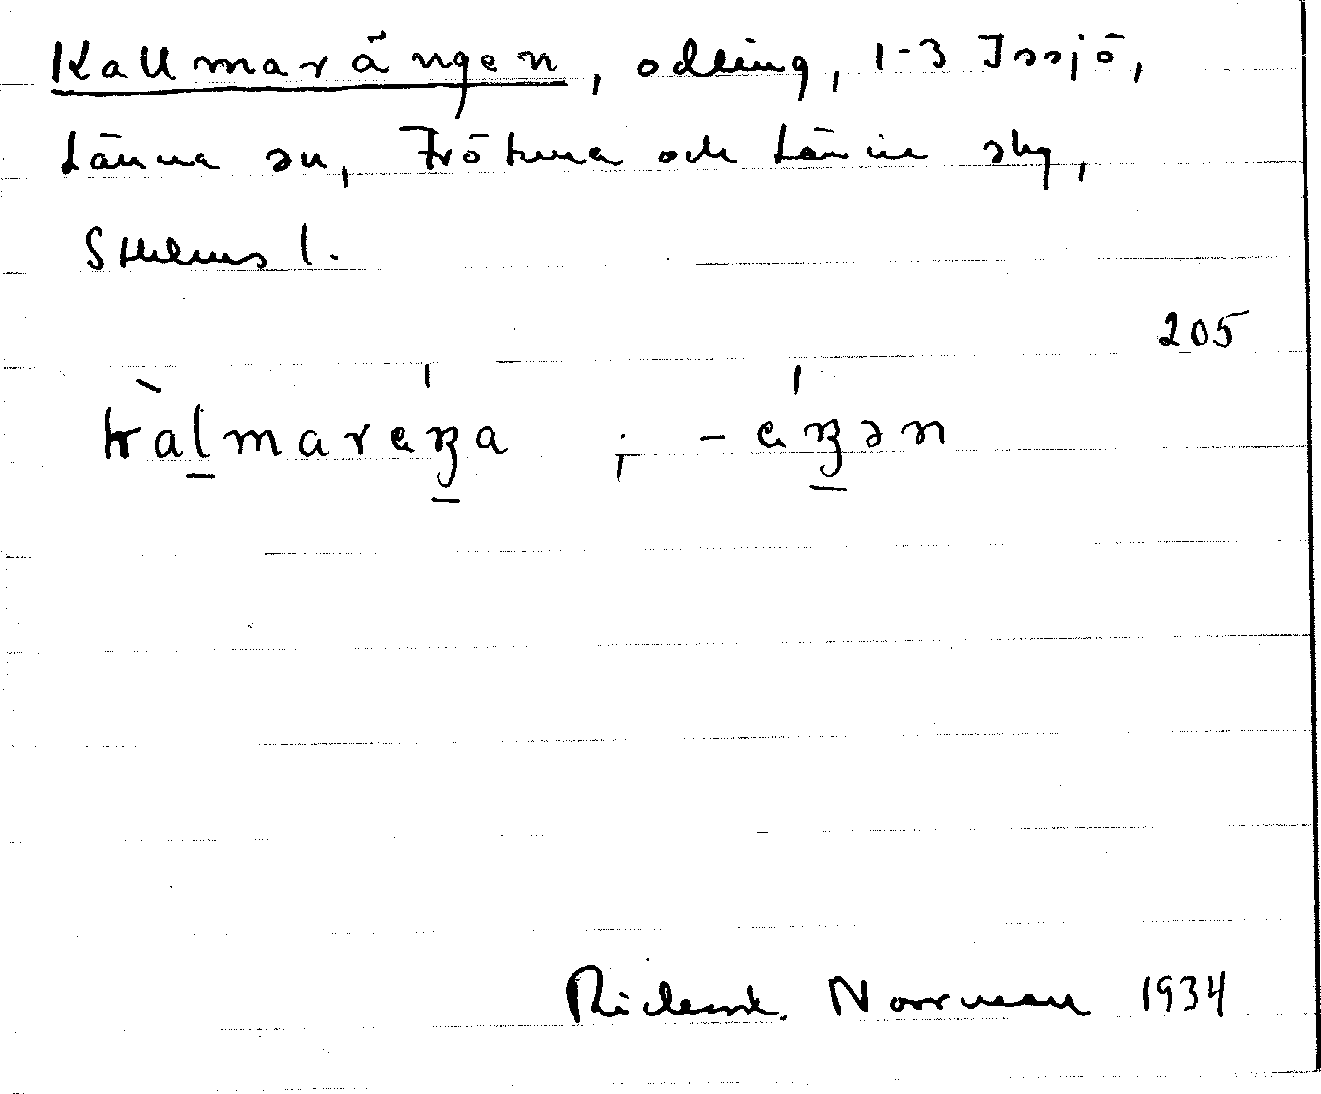 Kallmarängen, odling, 1-3 Issjö,
Länna sn, Frötuna och Länna skg,
Sthlms l.
205
kàl̠maréŋ̠a ; -éŋ̠ən
Rickard Norrman 1934